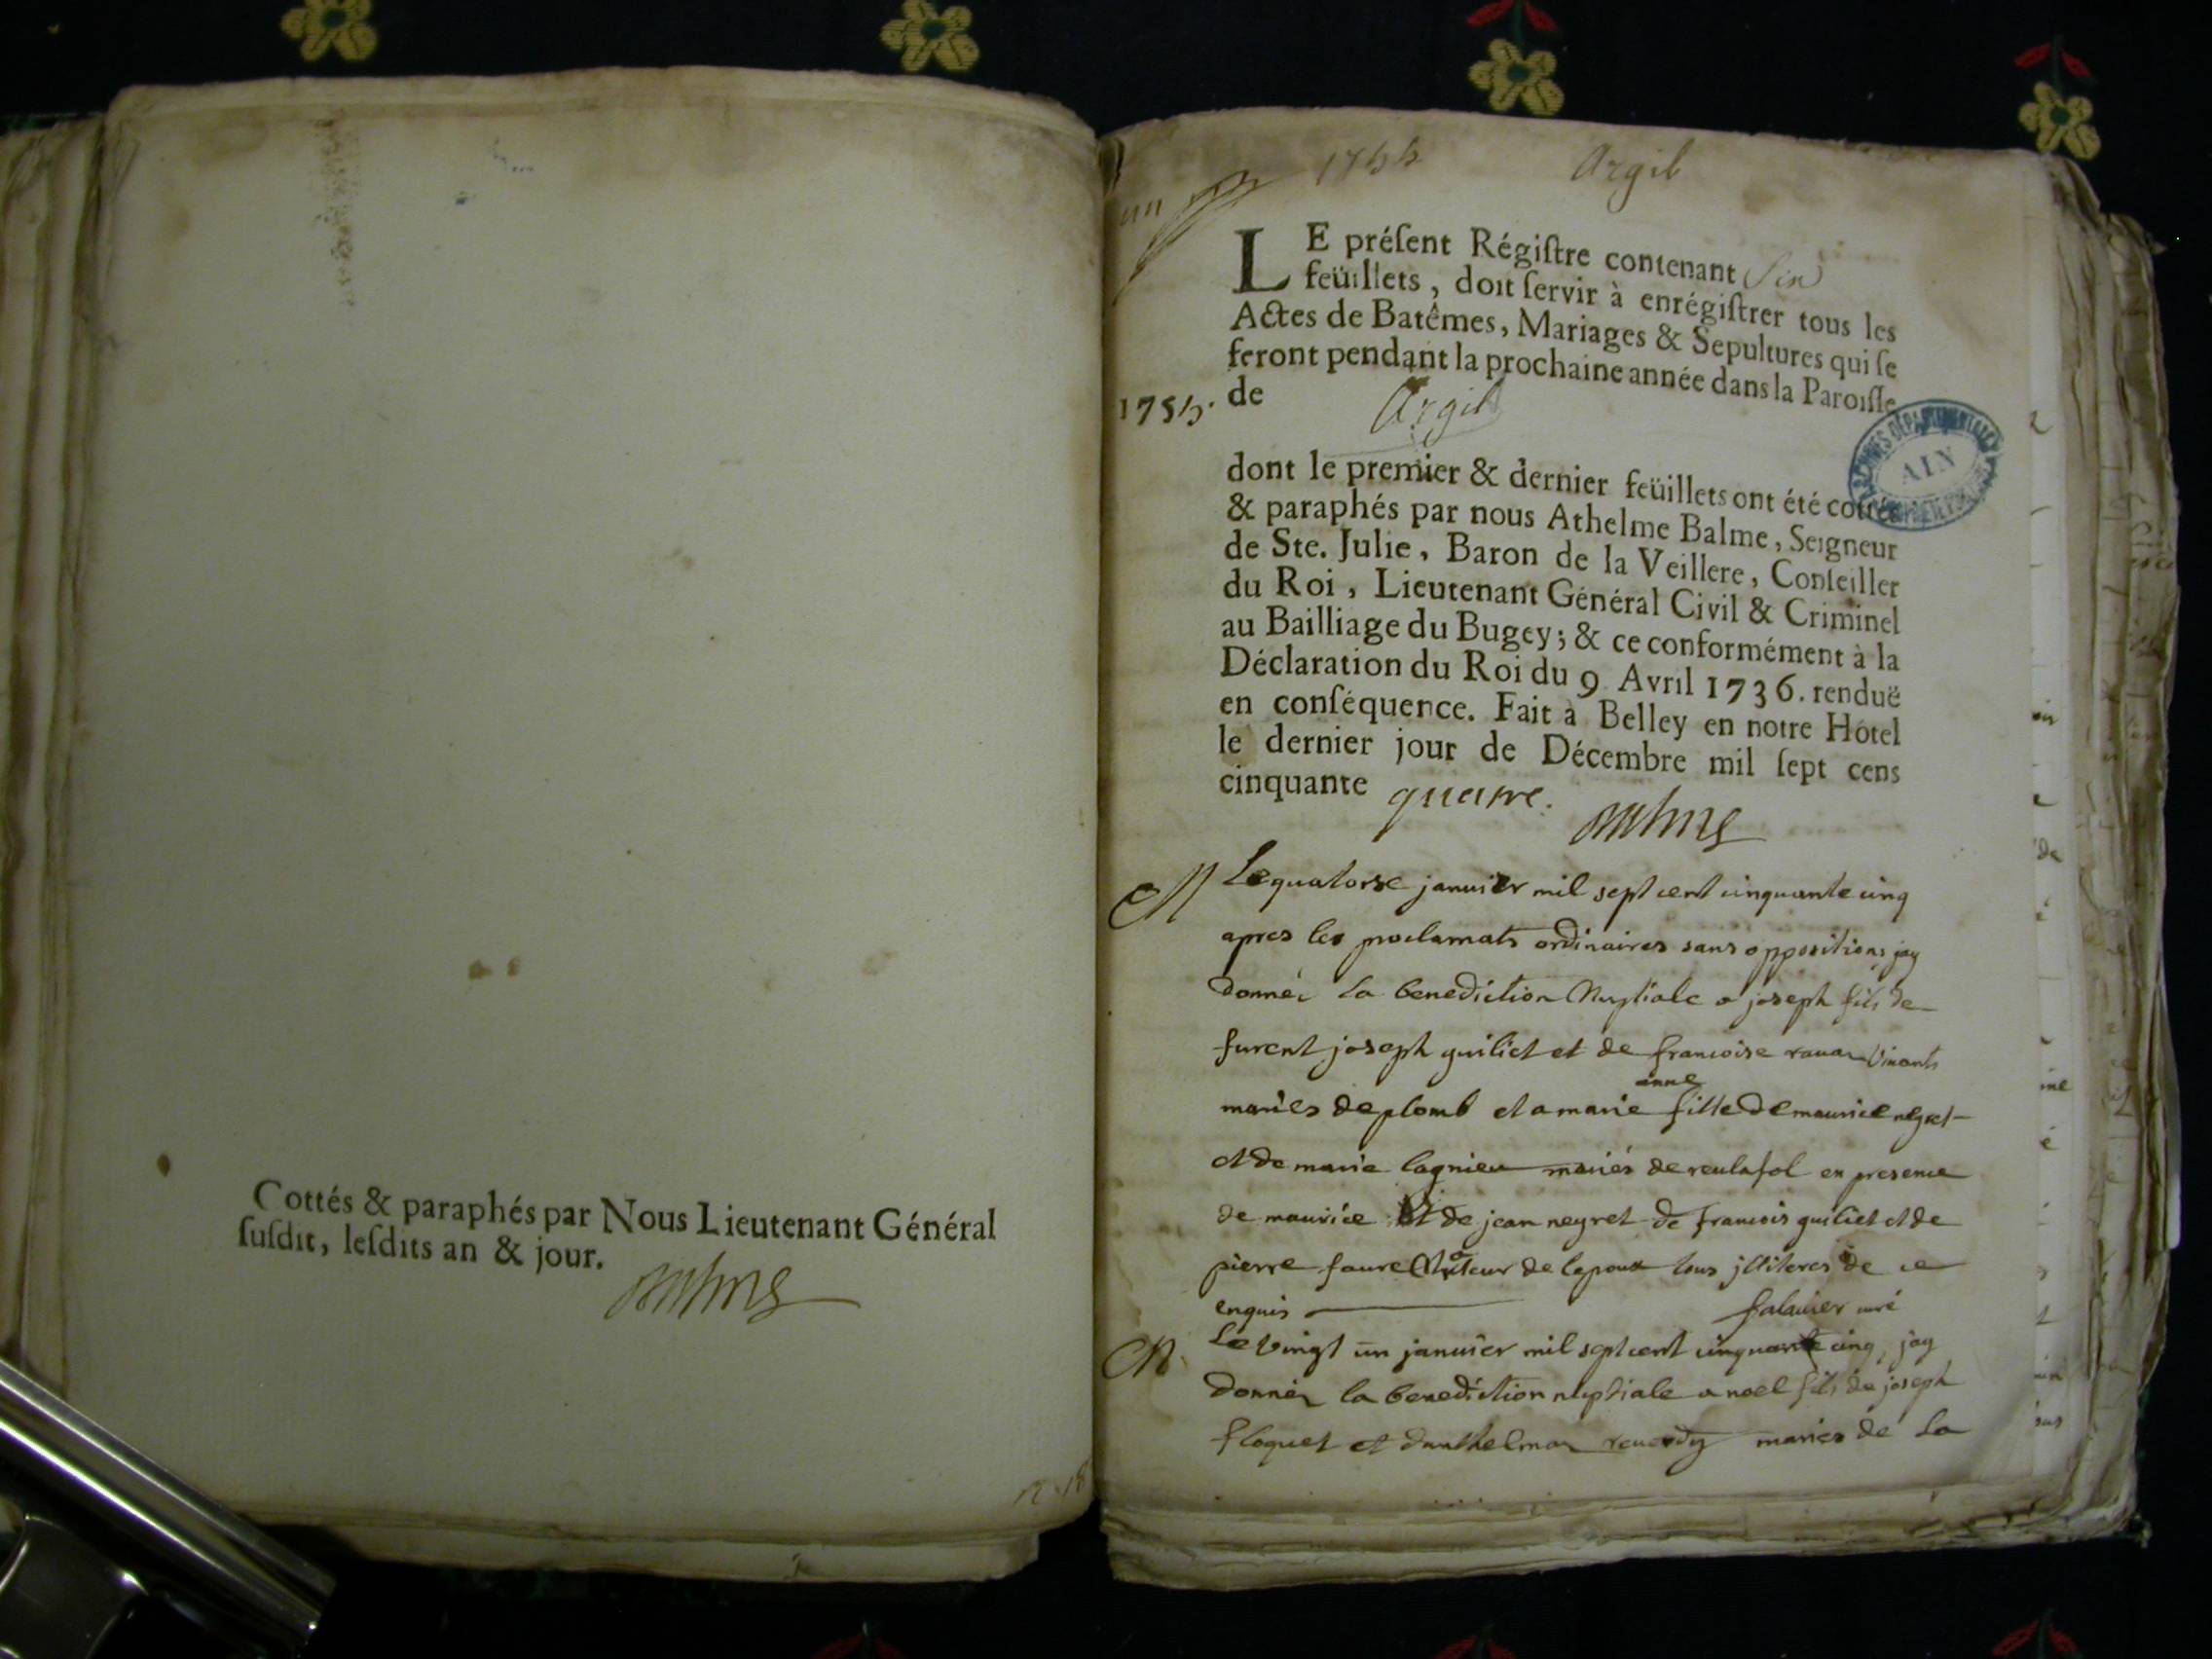 Cottés & paraphés par Nous Lieutenant Général
ſuſdit, leſdits an & jour.
Balme
1755 Argil
un
LE préſent Régiſtre contenant Six
feüillets, doit ſervir à enrégiſtrer tous les
Actes de Batêmes, Mariages & Sepultures qui ſe
feront pendant la prochaine année dans la Paroiſſe
1755. de Argil
dont le premier & dernier feüillets ont été cottés
& paraphés par nous Athelme Balme, Seigneur
de Ste. Julie, Baron de la Veillere, Conſeiller
du Roi, Lieutenant Général Civil & Criminel
au Bailliage du Bugey; & ce conformément à la
Déclaration du Roi du 9 Avril 1736. renduë
en conſéquence. Fait à Belley en notre Hôtel
le dernier jour de Décembre mil ſept cens
cinquante quatre.
Balme
ARCHIVES DEPARTEMENTALES
AIN
M Le quatorse janvier mil sept cent cinquante cinq
apres les proclamats ordinaires sans oppositions jay
donnéé la benediction Nuptiale a joseph fils de
furent joseph guiliet et de francoise vivants
mariés de plomb et a marie anne fille de maurice negret
et de marie lagnieu mariés de reculafol en presence
de maurice et de jean neyret de francois guiliet et de
pierre faure de lepoux tous jlliteres de ce
enquis falavier curé
M. Le vingt un janvier mil sept cent cinquante cinq, jay
donnéé la benediction nuptiale a noel fils de joseph
floquet et danthelmaz reverdy mariés de la